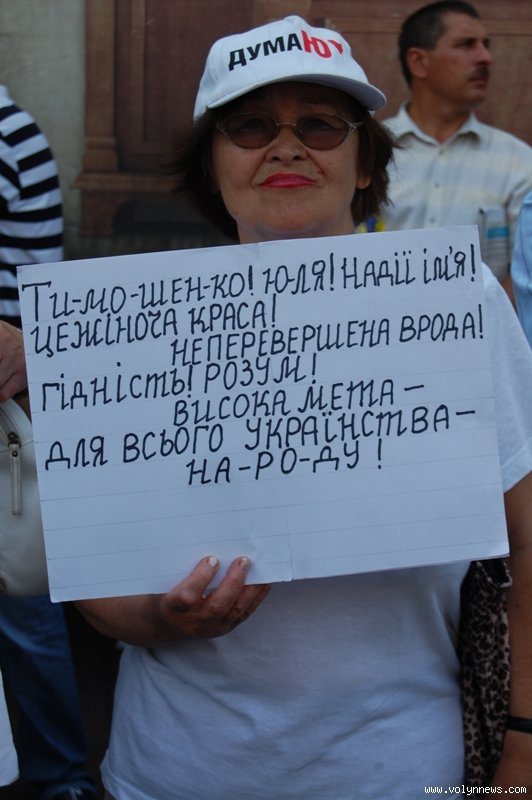 ДУМАЮ
ТИ-МО-ШЕН-КО! Ю-ЛЯ! НАДІЇ ІМ'Я!
ЦЕ ЖІНОЧА КРАСА!
НЕПЕРЕВЕРШЕНА ВРОДА!
ГІДНІСТЬ! РОЗУМ!
ВИСОКА МЕТА –
ДЛЯ ВСЬОГО УКРАЇНСТВА –
НА-РО-ДУ!
www.volynnews.com